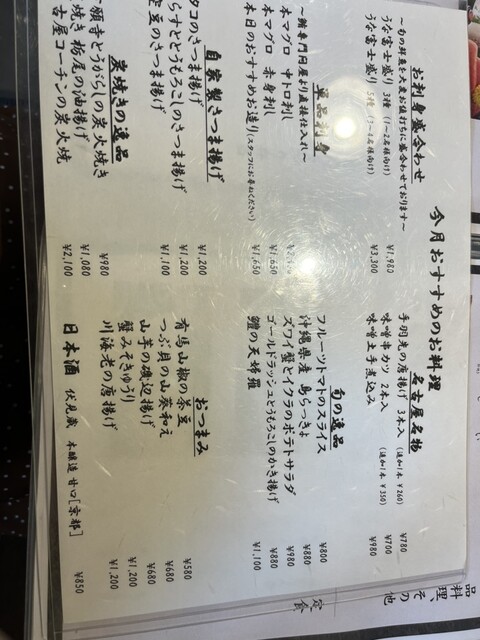 今月おすすめのお料理
お刺身盛合わせ
～旬の鮮魚を大変お値打ちに盛合わせております～
うな富士盛り 3種 (1～2名様向け) ¥1,980
うな富士盛り 5種 ¥3,300
単品刺身
～鮪専門問屋より直接仕入れ～
本マグロ 中トロ刺し
本マグロ 赤身刺し ¥1,650
本日のおすすめお造り(スタッフにお尋ねください) ¥1,650
自家製さつま揚げ
タコのさつま揚げ ¥1,200
らすととうもろこしのさつま揚げ ¥1,200
豆のさつま揚げ ¥1,100
炭焼きの逸品
願寺とうがらしの炭火焼き ¥980
焼き 栃尾の油揚げ ¥1,080
古屋コーチンの炭火焼 ¥2,100
名古屋名物
手羽先の唐揚げ 3本入 (追加1本 ¥260) ¥780
味噌串カツ 2本入 (追加1本 ¥350) ¥700
味噌土手煮込み ¥980
旬の逸品
フルーツトマトのスライス ¥800
沖縄県産 島らっきょ ¥880
ズワイ蟹とイクラのポテトサラダ ¥980
ゴールドラッシュとうもろこしのかき揚げ ¥880
鱧の天婦羅 ¥1,100
おつまみ
有馬山椒の茶豆 ¥580
つぶ貝の山葵和え ¥680
山芋の磯辺揚げ ¥680
蟹みそきゅうり ¥1,200
川海老の唐揚げ ¥1,200
日本酒 伏見蔵 本醸造 甘口[京都] ¥850
料理、その他
品
定食